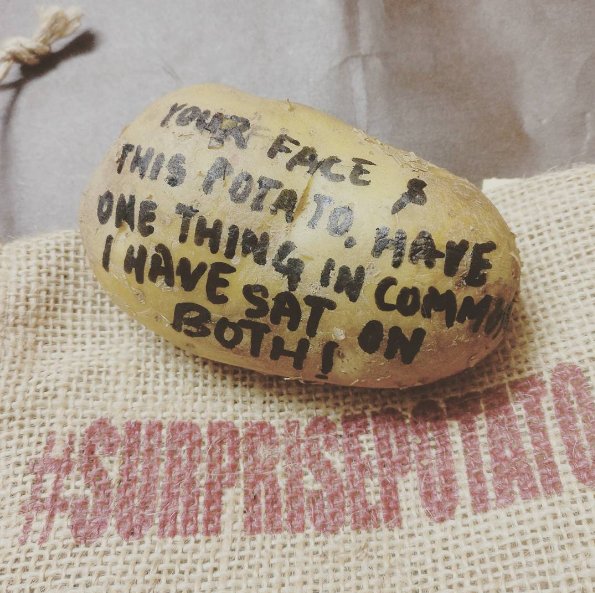 YOUR FACE &
THIS POTATO, HAVE
ONE THING IN COMMON
I HAVE SAT ON
BOTH!
#SURPRISEPOTATO